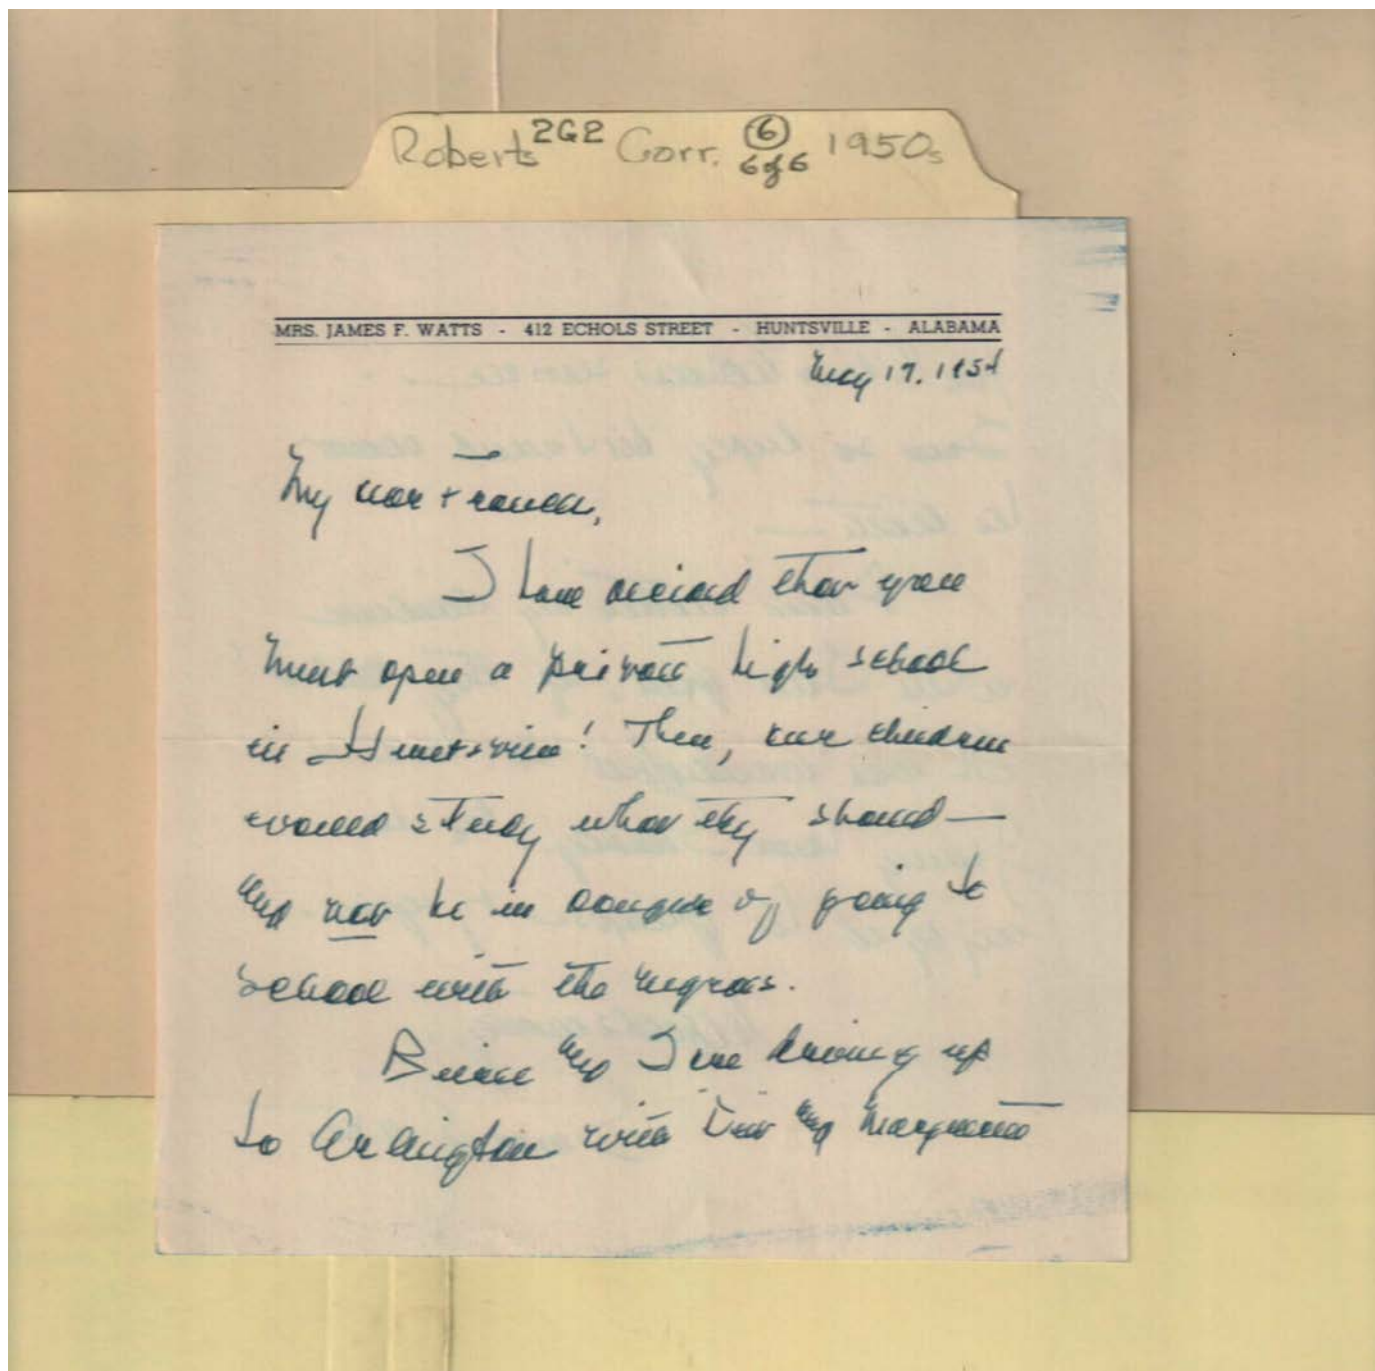 Roberts 2G2 Corr. 6 1950s
6 of 6
MRS. JAMES F. WATTS - 412 ECHOLS STREET - HUNTSVILLE - ALABAMA
May 17. 1954
My dear Frances,
I have decided that you
must open a private high school
in Huntsville! Then, our children
would study what they should—
and not be in danger of going to
school with the negroes.
and I are driving up
to Arlington with and